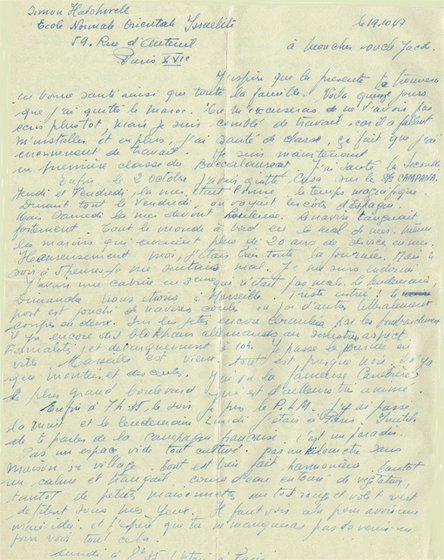 Simon
Ecole Normale Orientale Israélite
59, Rue d'Auteuil
Paris XVIe
le 19.10.47
à mon cher oncle Jacki
J'espère que la présente te trouvera
en bonne santé ainsi que toute la famille. Voilà quinze jours
que j'ai quitté le Maroc. Tu m'excuseras de ne t'avoir pas
écris plus tôt, mais je suis comblé de travail, car il a fallu
m'installer et en plus, j'ai sauté de classe, ce fait que j'ai
énormément de travail. Je suis maintenant
en première classe du Baccalauréat. J'ai sauté la seconde
Enfin le 2 octobre j'avais quitté Casa sur le SS CAMPANA.
Jeudi et Vendredi, la mer était calme le temps magnifique
Durant tout le Vendredi, on voyait les côtes d'Espagne.
Mais Samedi la mer devint houleuse. Le navire tanguait
fortement. Tout le monde à bord eu le mal de mer, même
les marins qui avaient plus de 20 ans de service en mer.
Heureusement moi, j'étais bien toute la journée. Mais le
soir à 7 heures je me sentais mal. Je me suis endormi
J'avais une cabine en 3e qui n'était pas mal. Le lendemain
Dimanche nous étions à Marseille. Triste entrée! Le
port est jonché de navires coulés ou j'ai d'autres littéralement
coupés en deux. Sur les jetées encore
il y a encore des allemands au aspect
et à tort. Je passe la journée en
ville. Marseille est vieux, tout est presque noir. Il y a
que montées et descentes. J'ai vu la fameuse Canebière
le plus grand boulevard qui est d'ailleurs très animé.
Enfin à 7h.45 le soir je pris le P.L.M. J'y ai passé
la nuit et le lendemain Lundi j'étais à Paris. Inutile
de te parler de la campagne française. C'est un paradis.
Pas un espace vide tout cultivé. Pas un kilomètre sans
maison ou village. Tout est bien fait, harmonieux. Tantôt
un calme et tranquil cours d'eau entouré de végétation,
tantôt de petites maisonnettes au toit rouge et volet vert
défilent sous mes yeux. Il faut vivre ça pour avoir une
vraie idée et j'espère que tu ne manqueras pas de venir un
jour voir tout cela.
Lundi à 8h.35 j'étais à Paris